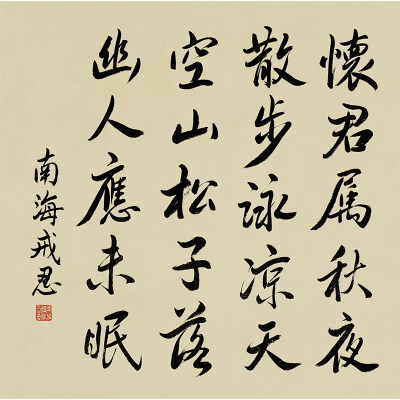 懷君属秋夜
散步詠凉天
空山松子落
幽人應未眠
南海戒忍